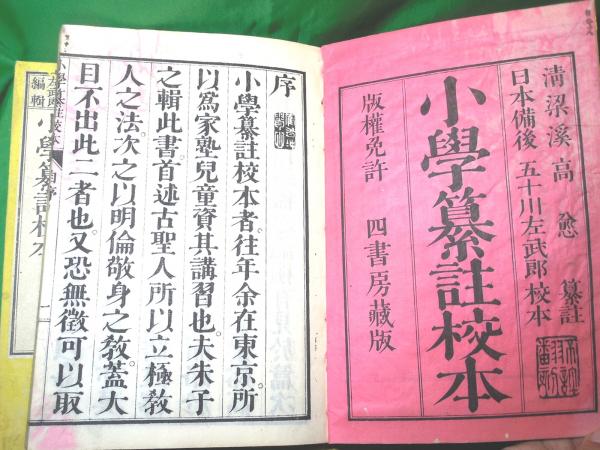 清梁溪高愈纂註
日本備後五十川左武郎校本
小學纂註校本
版權免許 四書房藏版
序
小學纂註校本者。往年余在東京。所
以爲家塾兒童資其講習也。夫朱子
之輯此書。首述古聖人所以立極敎
人之法。次之以明倫敬身之敎。蓋大
目不出此二者也。又恐無徵可以取
小學纂註校本
序
編輯
小學纂註校本